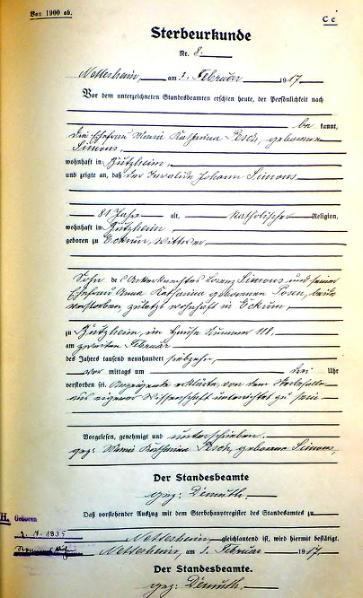 Bez. 1900 ab.
C c
Sterbeurkunde
Nr. 8.
Nettesheim, am 3. Februar 1917
Vor dem unterzeichneten Standesbeamten erschien heute, der Persönlichkeit nach
be kannt,
die Ehefrau Maria Katharina Esch, geborene
Simons,
wohnhaft in Bützheim,
und zeigte an, daß der Invalide Johann Simons
81 Jahre alt, katholischer Religion,
wohnhaft in Bützheim,
geboren zu Eckum, Witwer
Sohn des Ackerknechtes Simons und seiner
Ehefrau Anna Katharina geborenen beide
verstorben zuletzt wohnhaft in Eckum,
zu Bützheim, im Hause Nummer 111.
am zweiten Februar
des Jahres tausend neunhundert siebzehn,
vor mittags um Uhr
verstorben sei. Anzeigende erklärte, von dem Sterbefalle
aus eigener Wissenschaft unterrichtet zu sein
Vorgelesen, genehmigt und unterschrieben.
gez: Maria Katharina Esch, geborene Simons,
Der Standesbeamte
gez: Demuth.
Daß vorstehender Auszug mit dem Sterbehauptregister des Standesamtes zu
Nettesheim gleichlautend ist, wird hiermit bestätigt.
Nettesheim, am 3. Februar 1917.
Der Standesbeamte.
gez: Demuth.
H. Geboren